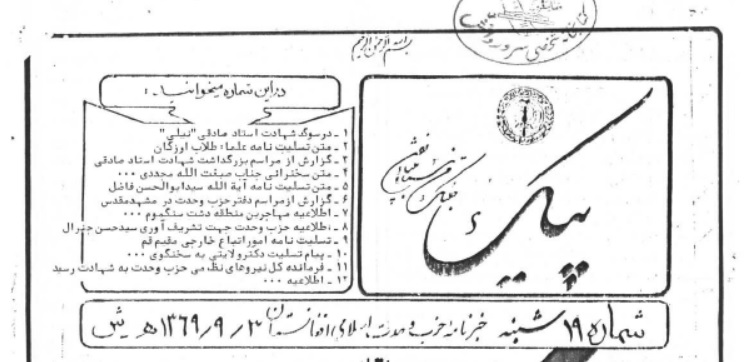 بسم الله الرحمن الرحیم
در این شماره میخوانید :
۱ - در سوگ شهادت استاد صادقی "نیلی"
۲ - متن تسلیت نامه علما، طلاب اورزگان
۳ - گزارش از مراسم بزرگداشت شهادت استاد صادقی
۴ - متن سخنرانی جناب صبغت الله مجددی ۰۰۰
۵ - متن تسلیت نامه آیة الله سیدابوالحسن فاضل
۶ - گزارش ازمراسم دفترحزب وحدت در مشهدمقدس
۷ - اطلاعیه مهاجرین منطقه دشت سنگموم ۰۰۰
۸ - اطلاعیه حزب وحدت جهت تشریف آوری سیدحسن جنرال
۹ - تسلیت نامه امور اتباع خارجی مقیم قم
۱۰ - پیام تسلیت دکترولایتی به سخنگوی ۰۰۰
۱۱ - فرمانده کل نیروهای نظامی حزب وحدت به شهادت رسید
۱۲ - اطلاعیه ۰۰۰
پیک
شماره ۱۹ شنبه خبرنامه حزب وحدت اسلامی افغانستان ۳/۹/۱۳۶۹ هـ ش